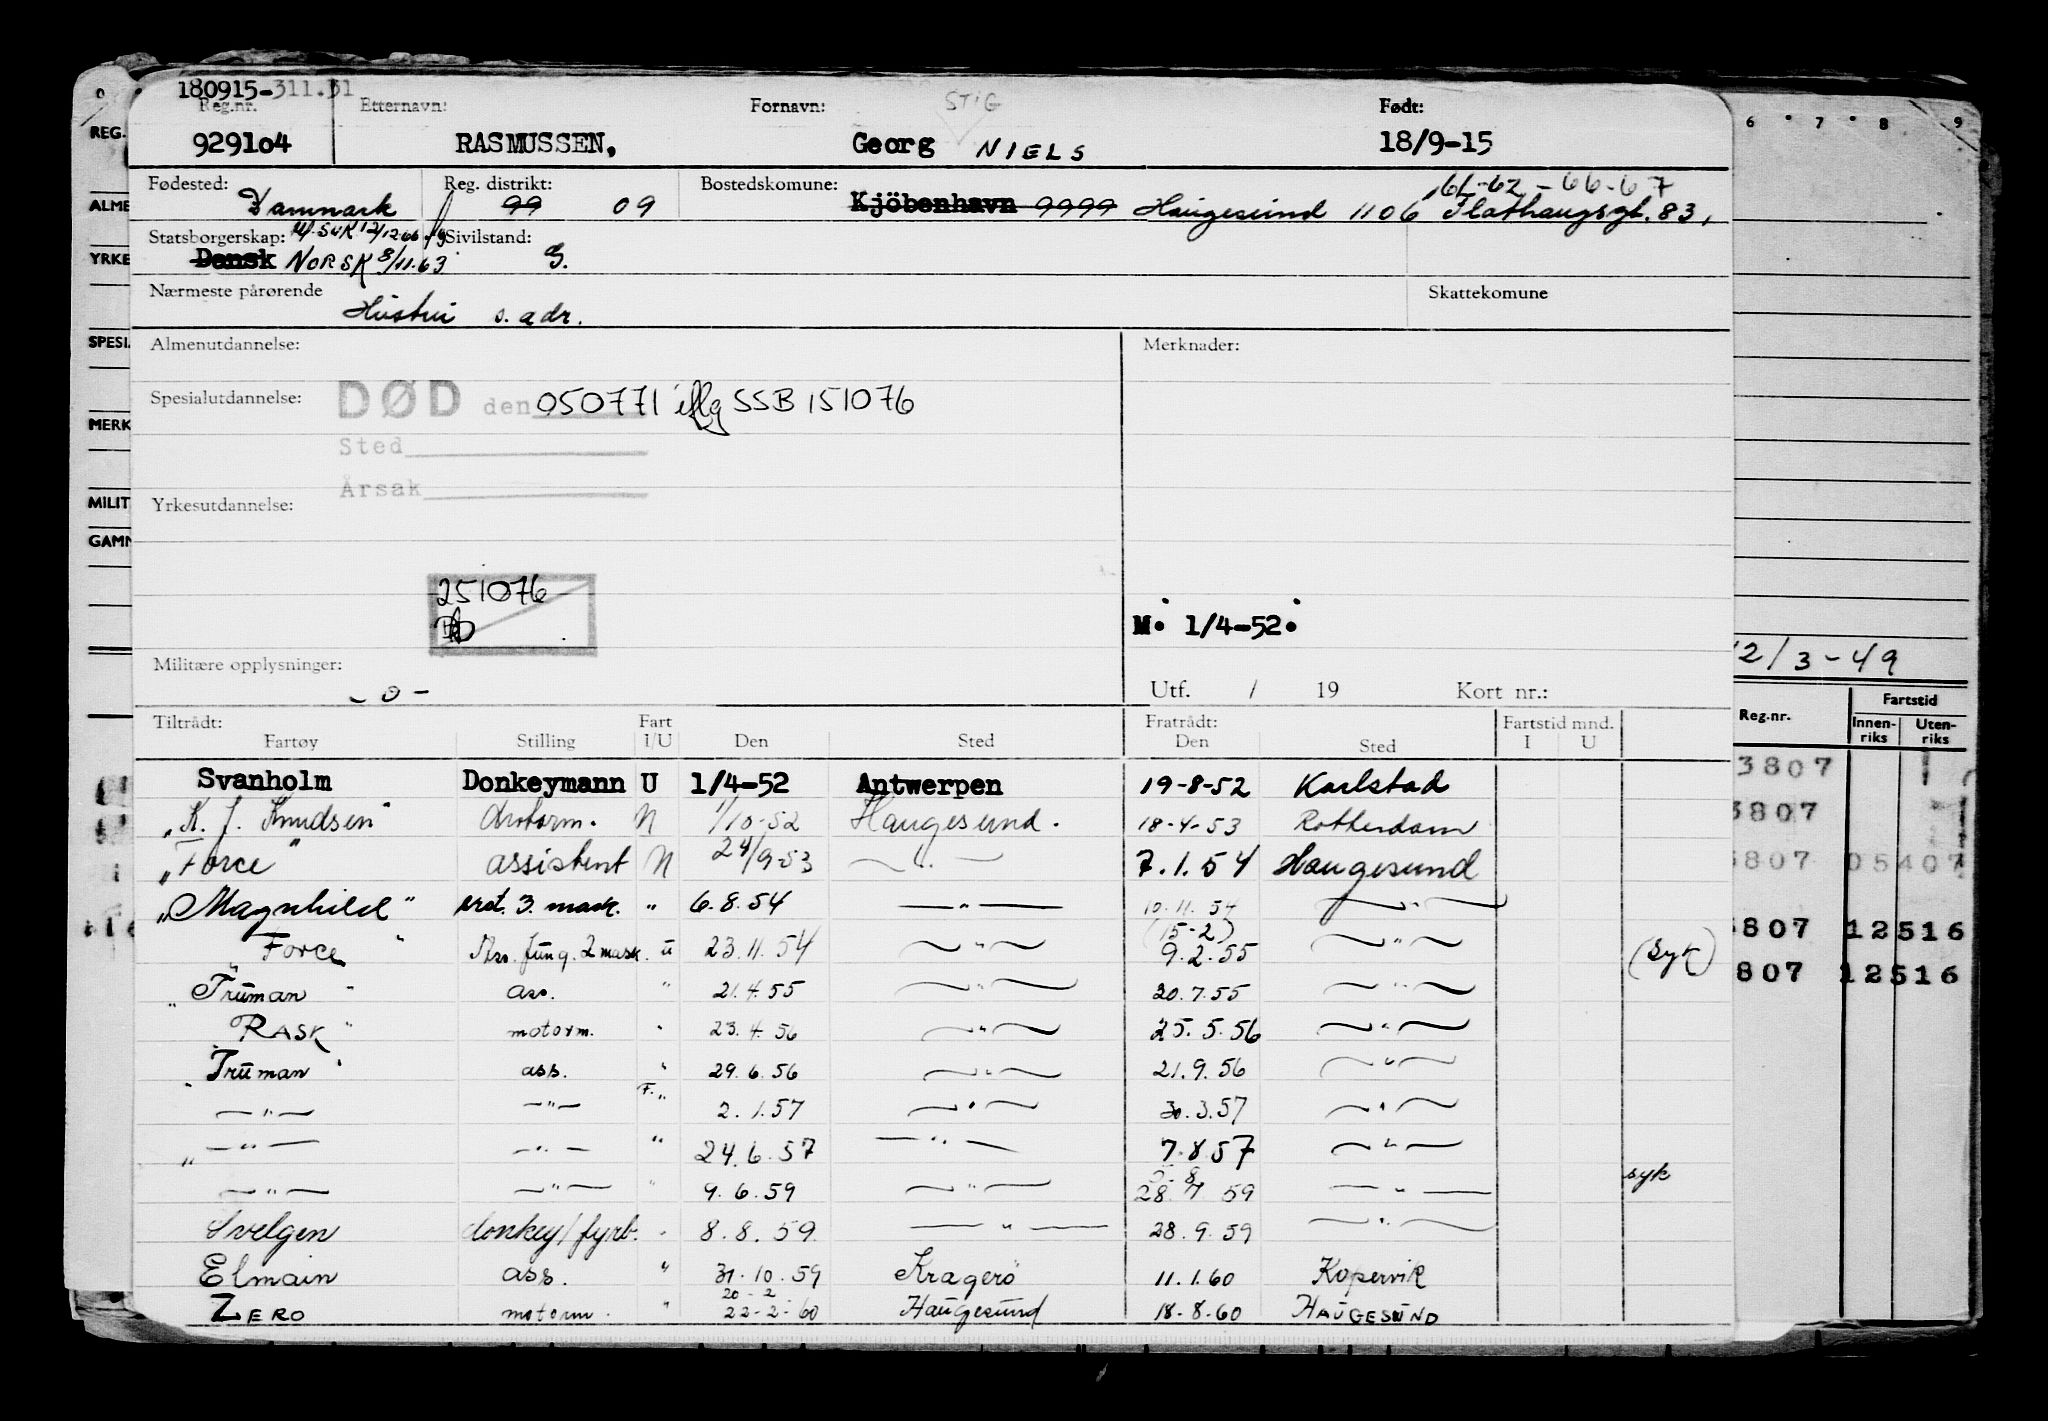 180915-311.31
Reg.nr. Etternavn: Fornavn: STIG Født:
929104 RASMUSSEN, Georg NIELS 18/9-15
Fødested: Reg. distrikt: Bostedskomune: 61-62-66-67
Danmark 99 09 Kjöbenhavn 9999 Haugesund 1106 Flathaugsgt. 83,
Statsborgerskap: 12/12.66 Sivilstand:
Dansk NORSK 8/11.63 G.
Nærmeste pårørende Skattekomune
Hustru s. adr.
Almenutdannelse: Merknader:
Spesialutdannelse: DØD den 050771 iflg SSB 151076
Sted
Årsak
Yrkesutdannelse:
251076
M. 1/4-52.
Militære opplysninger:
- 0 -
Utf. / 19 Kort nr.:
Tiltrådt: Fart Fratrådt: Fartstid mnd.
Fartøy Stilling I/U Den Sted Den Sted I U
Svanholm Donkeymann U 1/4-52 Antwerpen 19-8-52 Karlstad
"K. J. Knudsen" Motorm. N 1/10-52 Haugesund. 18-4-53 Rotterdam
"Force" assistent N 24/9-53 — " — 7.1.54 Haugesund
"Magnhild" 3. mask. " 6.8.54 — " — 10.11.54 — " —
(15-2)
"Force" Ass. fung. 2 mask. u 23.11.54 — " — 9.2.55 — " — (syk)
"Truman" ass. " 21.4.55 — " — 20.7.55 — " —
"RASK" motorm. " 23.4.56 — " — 25.5.56 — " —
"Truman" ass. " 29.6.56 — " — 21.9.56 — " —
— " — — " — F. " 2.1.57 — " — 30.3.57 — " —
— " — — " — " 24.6.57 — " — 7.8.57 — " —
— " — — " — " 9.6.59 — " — 28.7.59 — " — syk
Svelgen donkey/fyrb. " 8.8.59. — " — 28.9.59 — " —
Elmain ass. " 31.10.59 Kragerö 11.1.60 Kopervik
20-2
ZERO motorm. " 22-2-60 Haugesund 18-8-60 HAUGESUND
REG.
ALME
YRKE
SPESI
MERK
MILIT
GAMM
6 7 8 9
12/3-49
Reg.nr. Fartstid
Innen-riks Uten-riks
3807
3807
3807 05407
3807 12516
807 12516